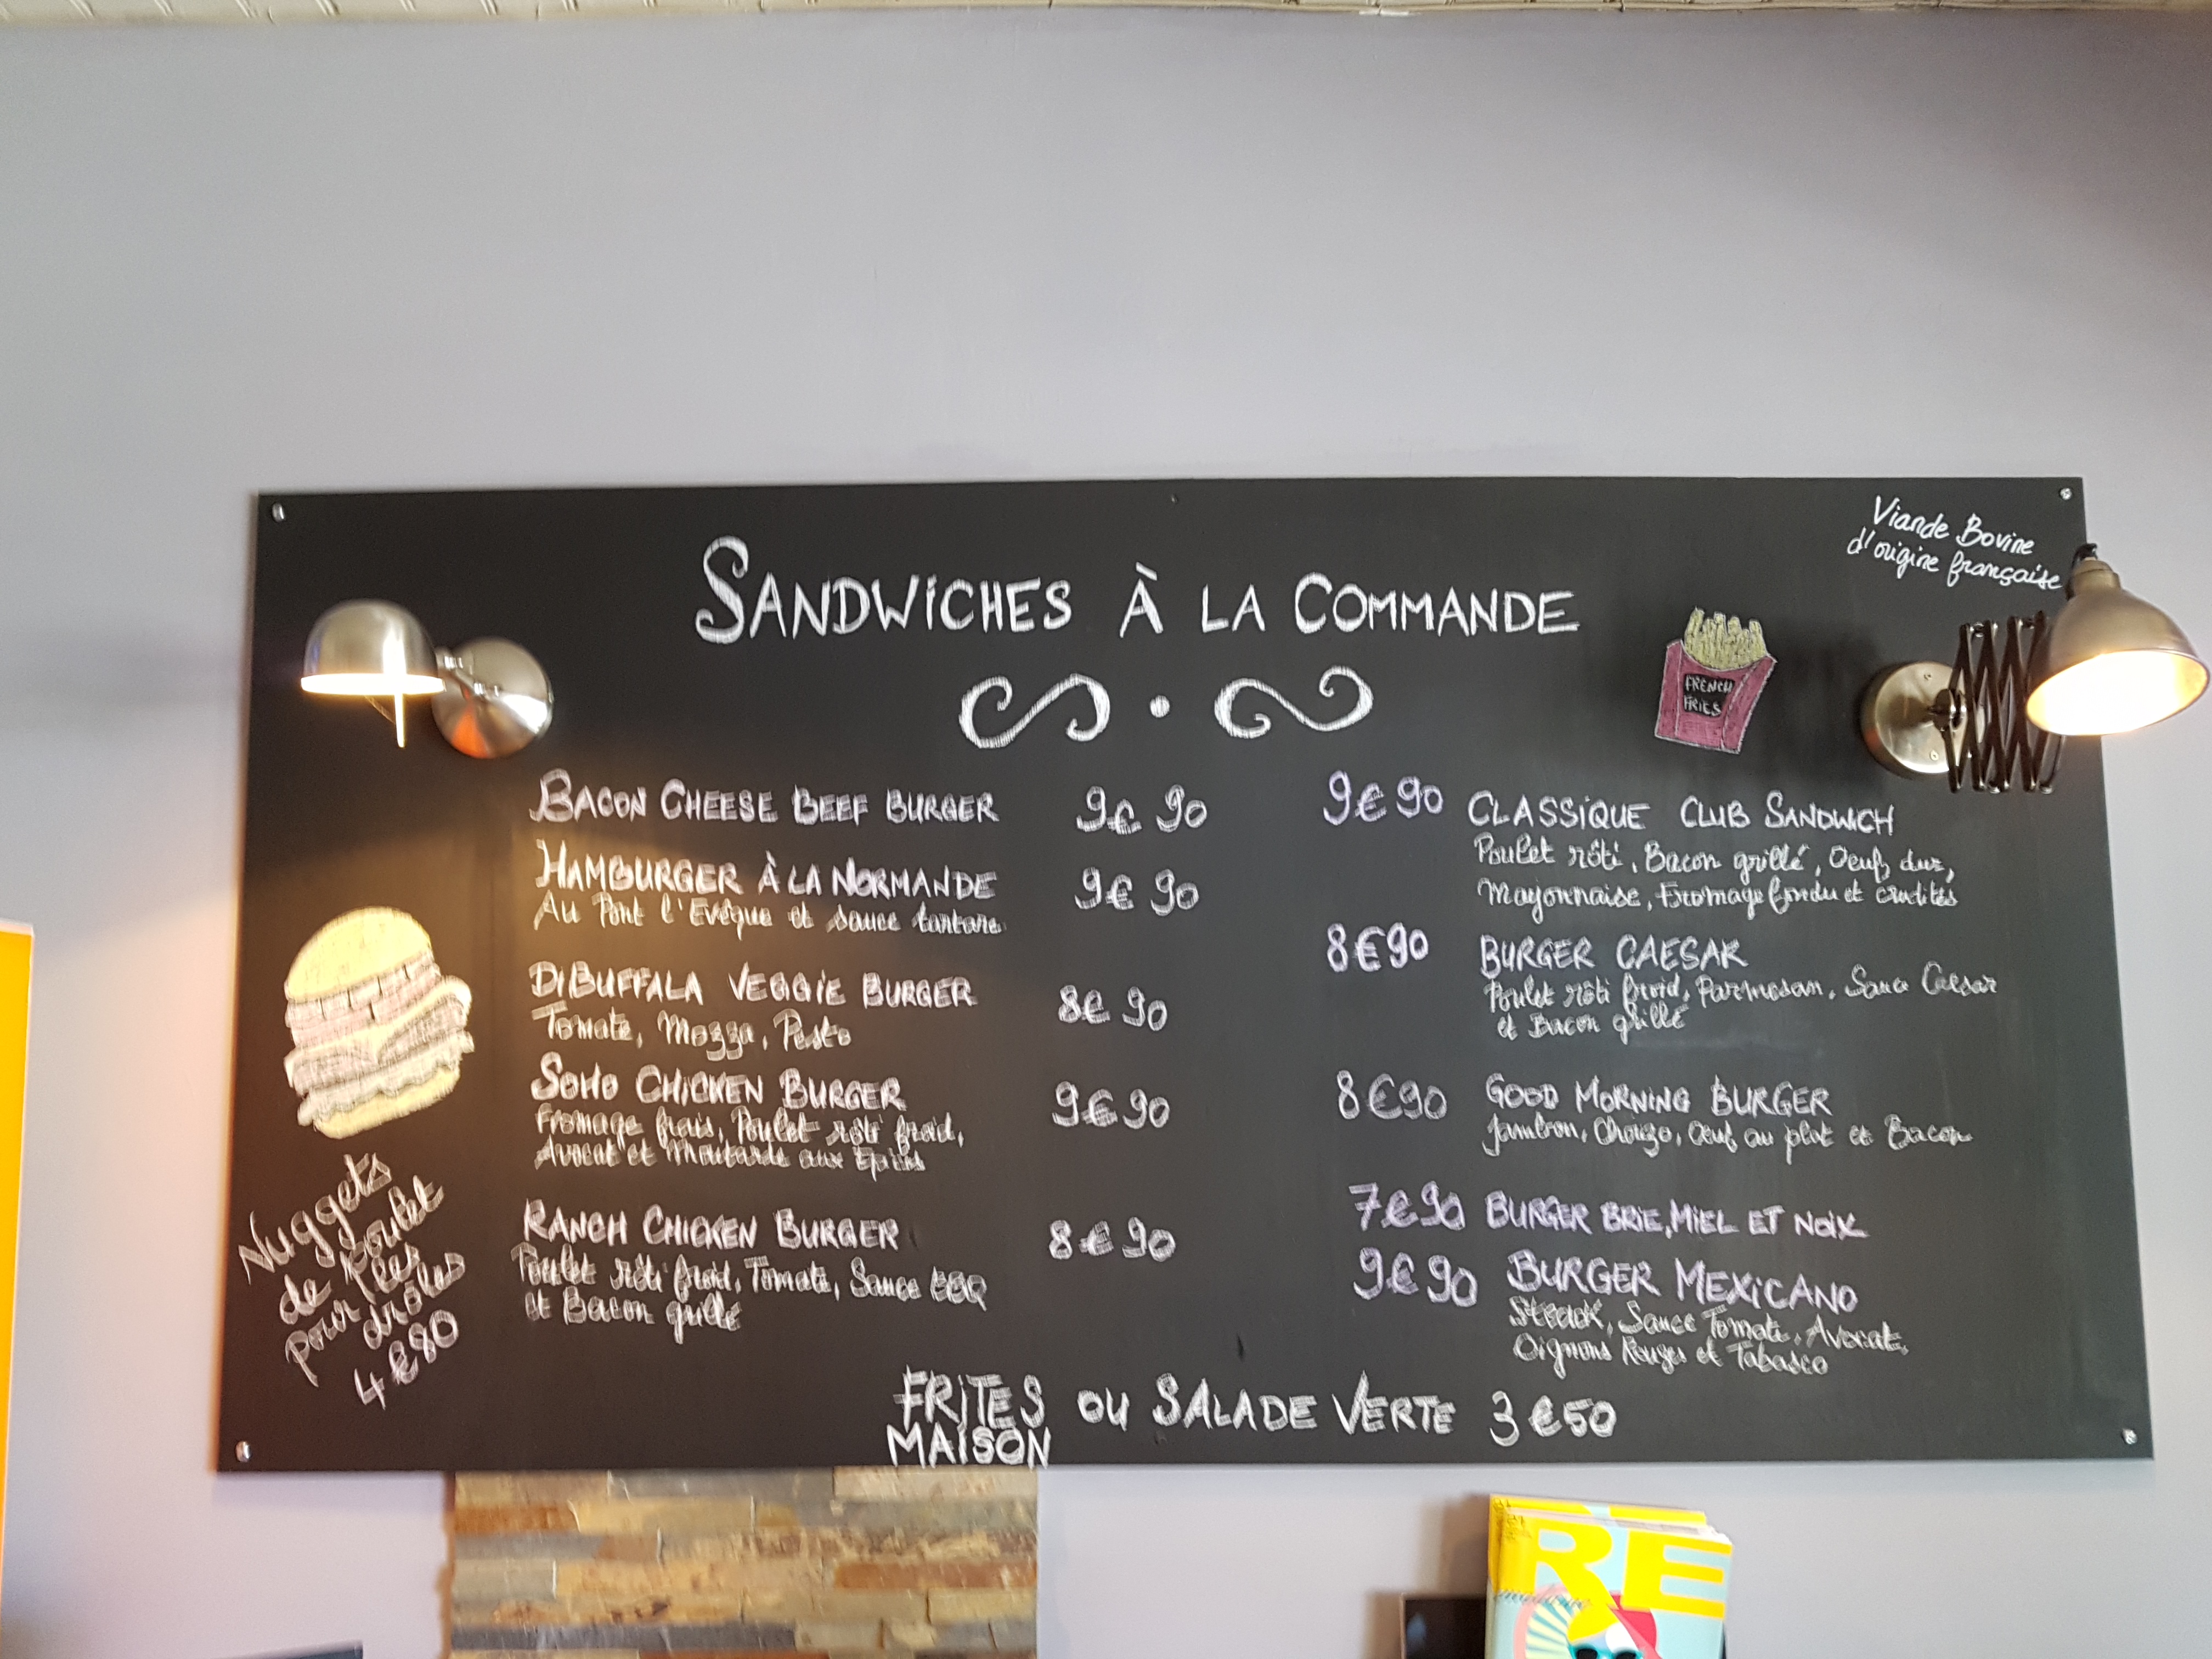 Viande Bovine
d'origine française
SANDWICHES À LA COMMANDE
FRENCH
FRIES
BACON CHEESE BEEF BURGER 9€90
HAMBURGER À LA NORMANDE 9€90
Au Pont l'Evêque et sauce tartare
DIBUFFALA VEGGIE BURGER 8€90
Tomate, Mozza, Pesto
SOHO CHICKEN BURGER 9€90
Fromage frais, Poulet rôti froid,
Avocat et Moutarde aux Epices
RANCH CHICKEN BURGER 8€90
Poulet rôti froid, Tomate, Sauce BBQ
et Bacon grillé
9€90 CLASSIQUE CLUB SANDWICH
Poulet rôti, Bacon grillé, Oeuf dur,
Mayonnaise, Fromage fondu et crudités
8€90 BURGER CAESAR
Poulet rôti froid, Parmesan, Sauce Caesar
et Bacon grillé
8€90 GOOD MORNING BURGER
Jambon, Chorizo, Oeuf au plat et Bacon
7€90 BURGER BRIE, MIEL ET NOIX
9€90 BURGER MEXICANO
Steack, Sauce Tomate, Avocat,
Oignons Rouges et Tabasco
Nuggets
de poulet
pour les
drôles
4€80
FRITES OU SALADE VERTE 3€50
MAISON
RE